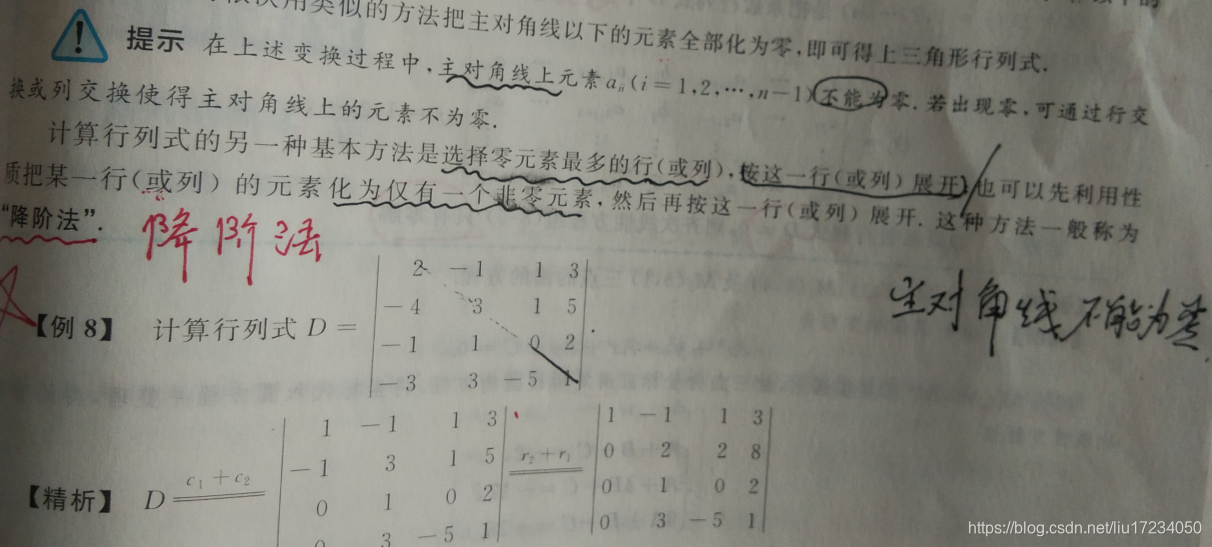 依次用类似的方法把主对角线以下的元素全部化为零,即可得上三角形行列式.
提示 在上述变换过程中,主对角线上元素 aii(i=1,2,…,n-1)不能为零. 若出现零,可通过行交
换或列交换使得主对角线上的元素不为零.
计算行列式的另一种基本方法是选择零元素最多的行(或列),按这一行(或列)展开,也可以先利用性
质把某一行(或列)的元素化为仅有一个非零元素,然后再按这一行(或列)展开. 这种方法一般称为
“降阶法”.
降阶法
2 -1 1 3
-4 3 1 5
主对角线不能为零.
【例 8】 计算行列式 D =
-1 1 0 2
-3 3 5 1
1 -1 1 3
-1 3 1 5
0 1 0 2
0 3 -5 1
【精析】 D c₁+c₂
r₂+r₁
1 -1 1 3
0 2 2 8
0 1 0 2
0 3 -5 1
https://blog.csdn.net/liu17234050